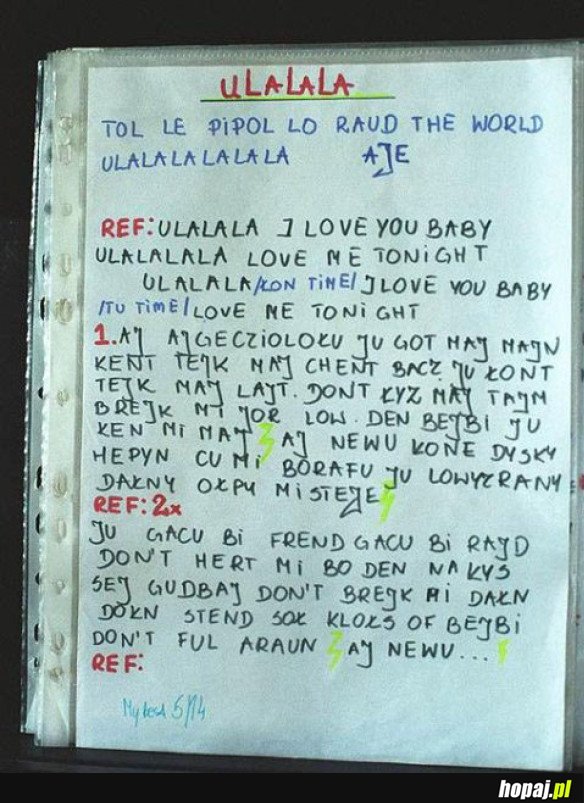 ULALALA
TOL LE PIPOL LO RAUD THE WORLD
ULALALALALALA AJE
REF: ULALALA J LOVE YOU BABY
ULALALALA LOVE ME TONIGHT
ULALALA /ŁON TIME/ J LOVE YOU BABY
/TU TIME/ LOVE ME TONIGHT
1. AJ AJGECZIOLOŁU JU GOT MAJ MAJN
KENT TEJK MAJ CHENT BACZ JU ŁONT
TEJK MAJ LAJT. DONT ŁYZ MAJ TAJM
BREJK MI JOR LOW. DEN BEJBI JU
KEN MI MAJ AJ NEWU KONE DYSKY
HEPYN CU MI BORAFU JU LOWYZRANY
DAŁNY OŁPU MISTEJE
REF: 2x
JU GACU BI FREND GACU BI RAJD
DON'T HERT MI BO DEN NA KYS
SEJ GUDBAJ DON'T BREJK MI DAŁN
DOŁN STEND SOŁ KLOŁS OF BEJBI
DON'T FUL ARAUN AJ NEWU...
REF:
My best 5/14
hopaj.pl